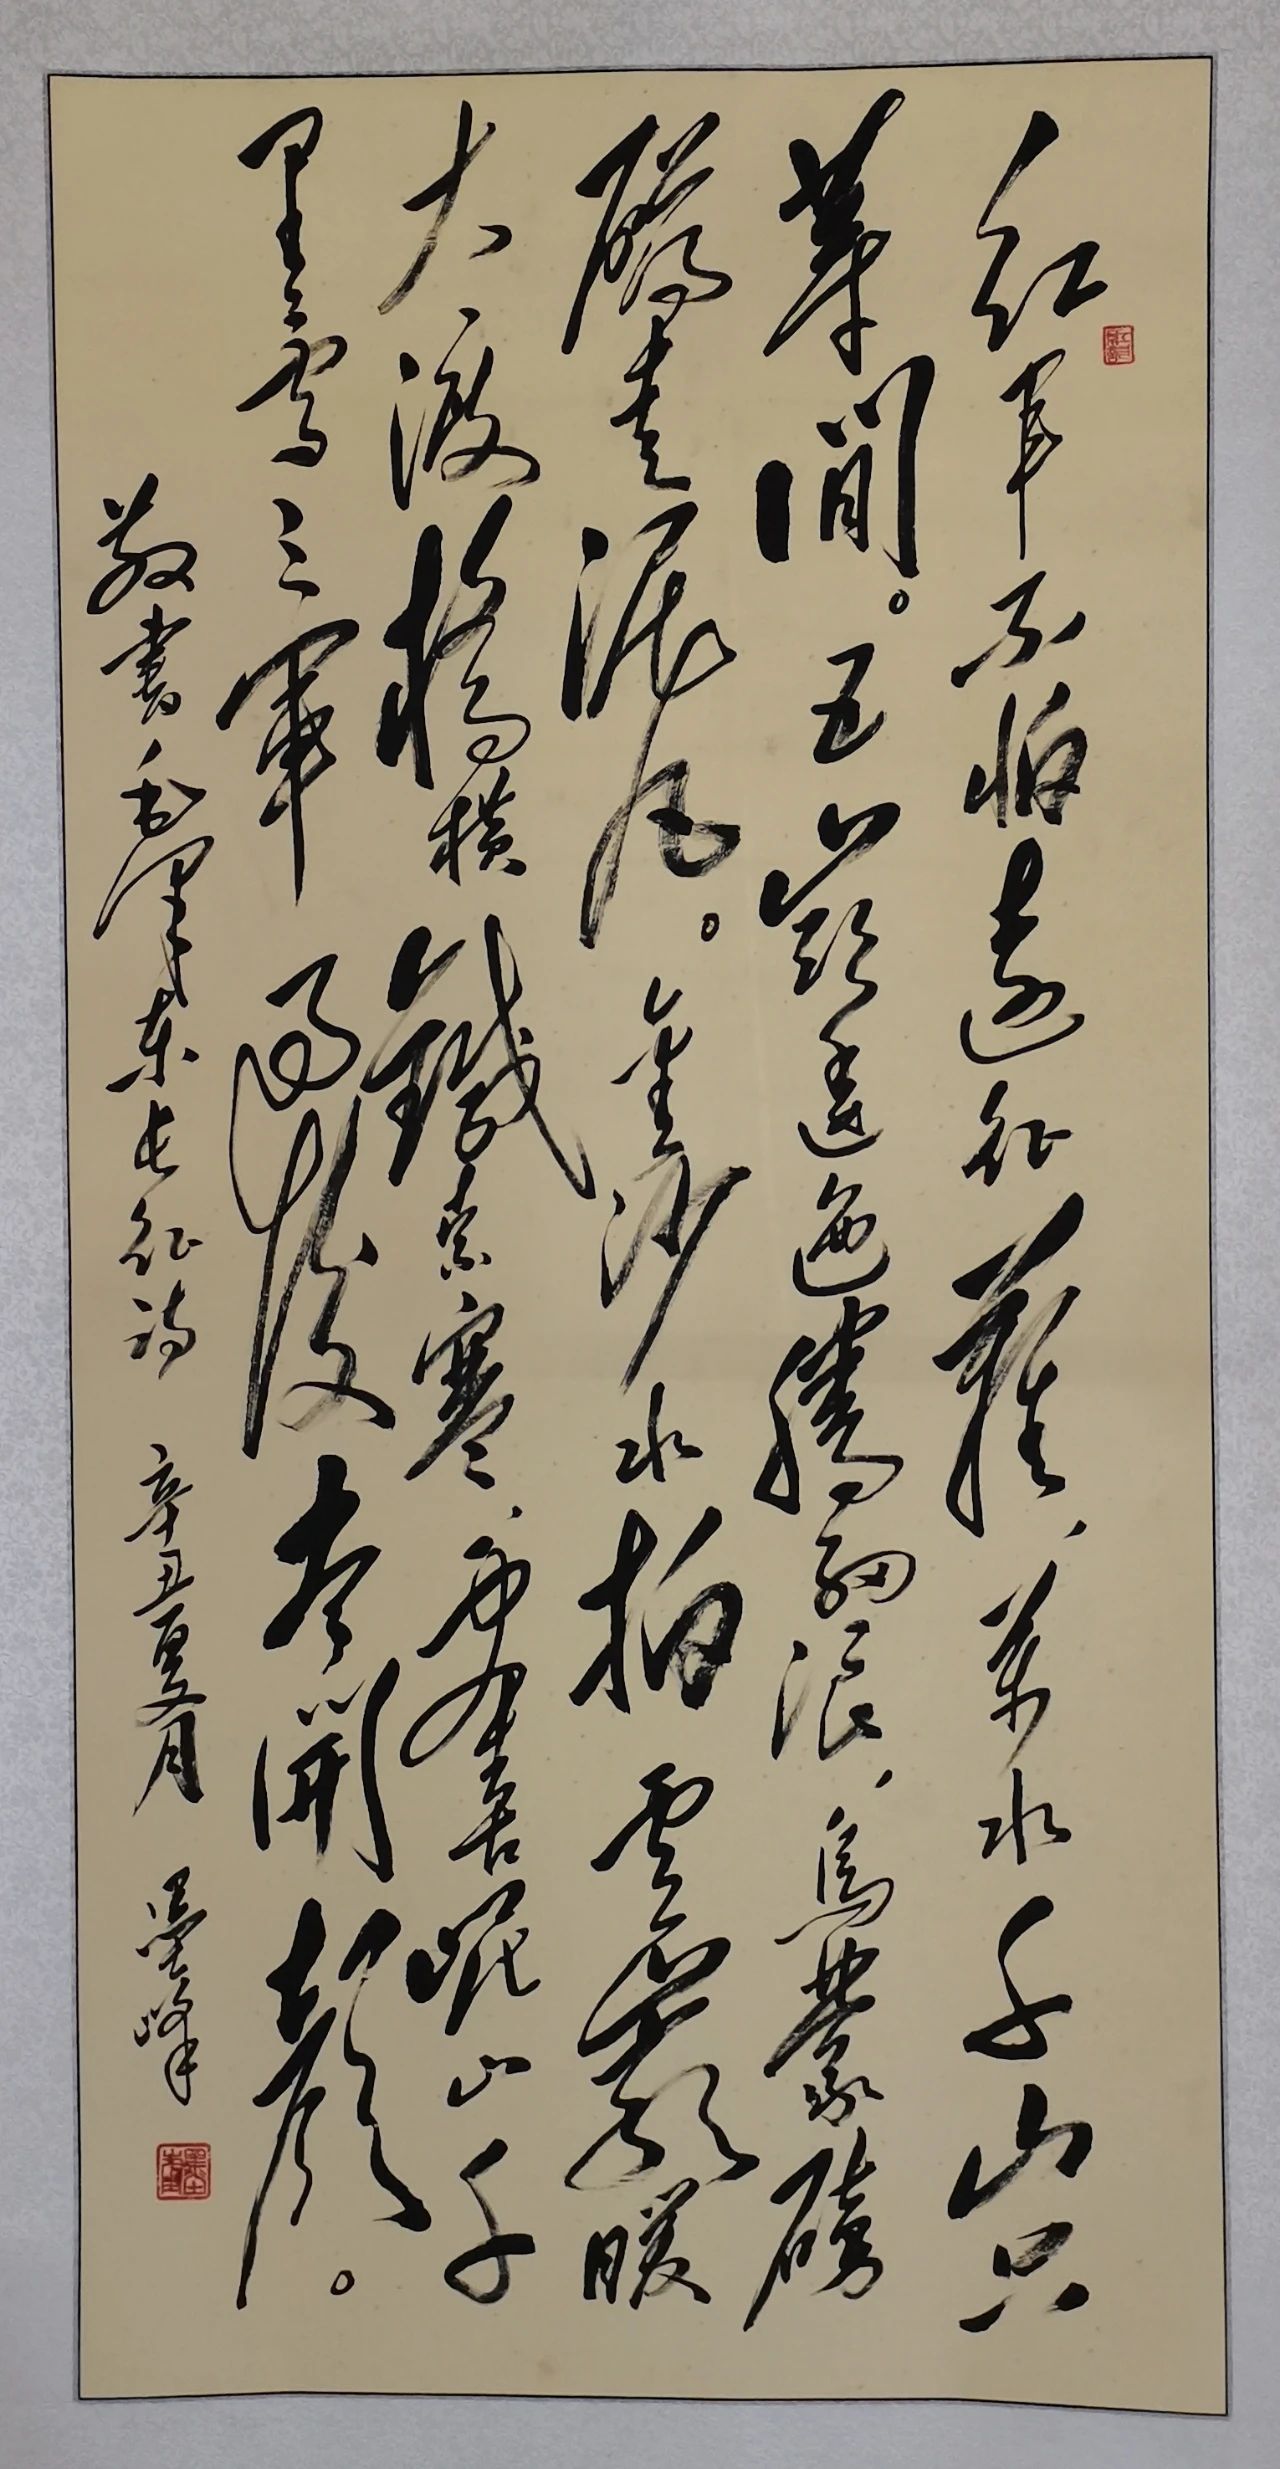 红軍不怕遠征難、萬水千山只
等閒。五嶺逶迤騰細浪、烏蒙磅
礴走泥丸。金沙水拍雲崖暖
大渡橋橫鐵索寒、更喜岷山千
里雪三軍過後盡開顏。
敬書毛澤東長征詩 辛丑夏月 墨峰